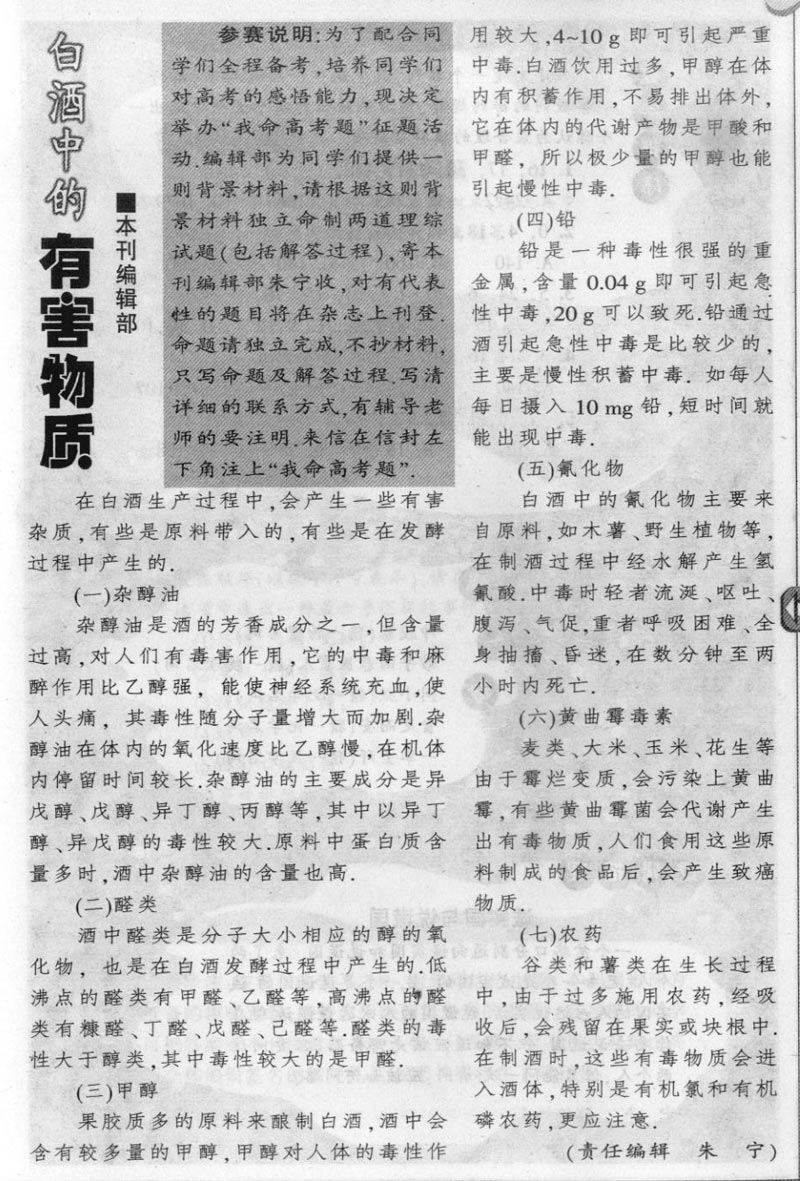 白酒中的
有害物质
■本刊编辑部
参赛说明:为了配合同
学们全程备考,培养同学们
对高考的感悟能力,现决定
举办“我命高考题”征题活
动.编辑部为同学们提供一
则背景材料,请根据这则背
景材料独立命制两道理综
试题(包括解答过程),寄本
刊编辑部朱宁收,对有代表
性的题目将在杂志上刊登.
命题请独立完成,不抄材料,
只写命题及解答过程.写清
详细的联系方式,有辅导老
师的要注明.来信在信封左
下角注上“我命高考题”.
在白酒生产过程中,会产生一些有害
杂质,有些是原料带入的,有些是在发酵
过程中产生的.
(一)杂醇油
杂醇油是酒的芳香成分之一,但含量
过高,对人们有毒害作用,它的中毒和麻
醉作用比乙醇强，能使神经系统充血,使
人头痛，其毒性随分子量增大而加剧.杂
醇油在体内的氧化速度比乙醇慢,在机体
内停留时间较长.杂醇油的主要成分是异
戊醇、戊醇、异丁醇、丙醇等,其中以异丁
醇、异戊醇的毒性较大.原料中蛋白质含
量多时,酒中杂醇油的含量也高.
(二)醛类
酒中醛类是分子大小相应的醇的氧
化物，也是在白酒发酵过程中产生的.低
沸点的醛类有甲醛、乙醛等,高沸点的醛
类有糠醛、丁醛、戊醛、己醛等.醛类的毒
性大于醇类,其中毒性较大的是甲醛.
(三)甲醇
果胶质多的原料来酿制白酒,酒中会
含有较多量的甲醇,甲醇对人体的毒性作
用较大,4~10 g 即可引起严重
中毒.白酒饮用过多,甲醇在体
内有积蓄作用,不易排出体外,
它在体内的代谢产物是甲酸和
甲醛，所以极少量的甲醇也能
引起慢性中毒.
(四)铅
铅是一种毒性很强的重
金属,含量 0.04 g 即可引起急
性中毒,20 g 可以致死.铅通过
酒引起急性中毒是比较少的,
主要是慢性积蓄中毒. 如每人
每日摄入 10 mg 铅,短时间就
能出现中毒.
(五)氰化物
白酒中的氰化物主要来
自原料,如木薯、野生植物等,
在制酒过程中经水解产生氢
氰酸.中毒时轻者流涎、呕吐、
腹泻、气促,重者呼吸困难、全
身抽搐、昏迷,在数分钟至两
小时内死亡.
(六)黄曲霉毒素
麦类、大米、玉米、花生等
由于霉烂变质,会污染上黄曲
霉,有些黄曲霉菌会代谢产生
出有毒物质,人们食用这些原
料制成的食品后,会产生致癌
物质.
(七)农药
谷类和薯类在生长过程
中,由于过多施用农药,经吸
收后,会残留在果实或块根中.
在制酒时,这些有毒物质会进
入酒体,特别是有机氯和有机
磷农药,更应注意.
(责任编辑 朱 宁)